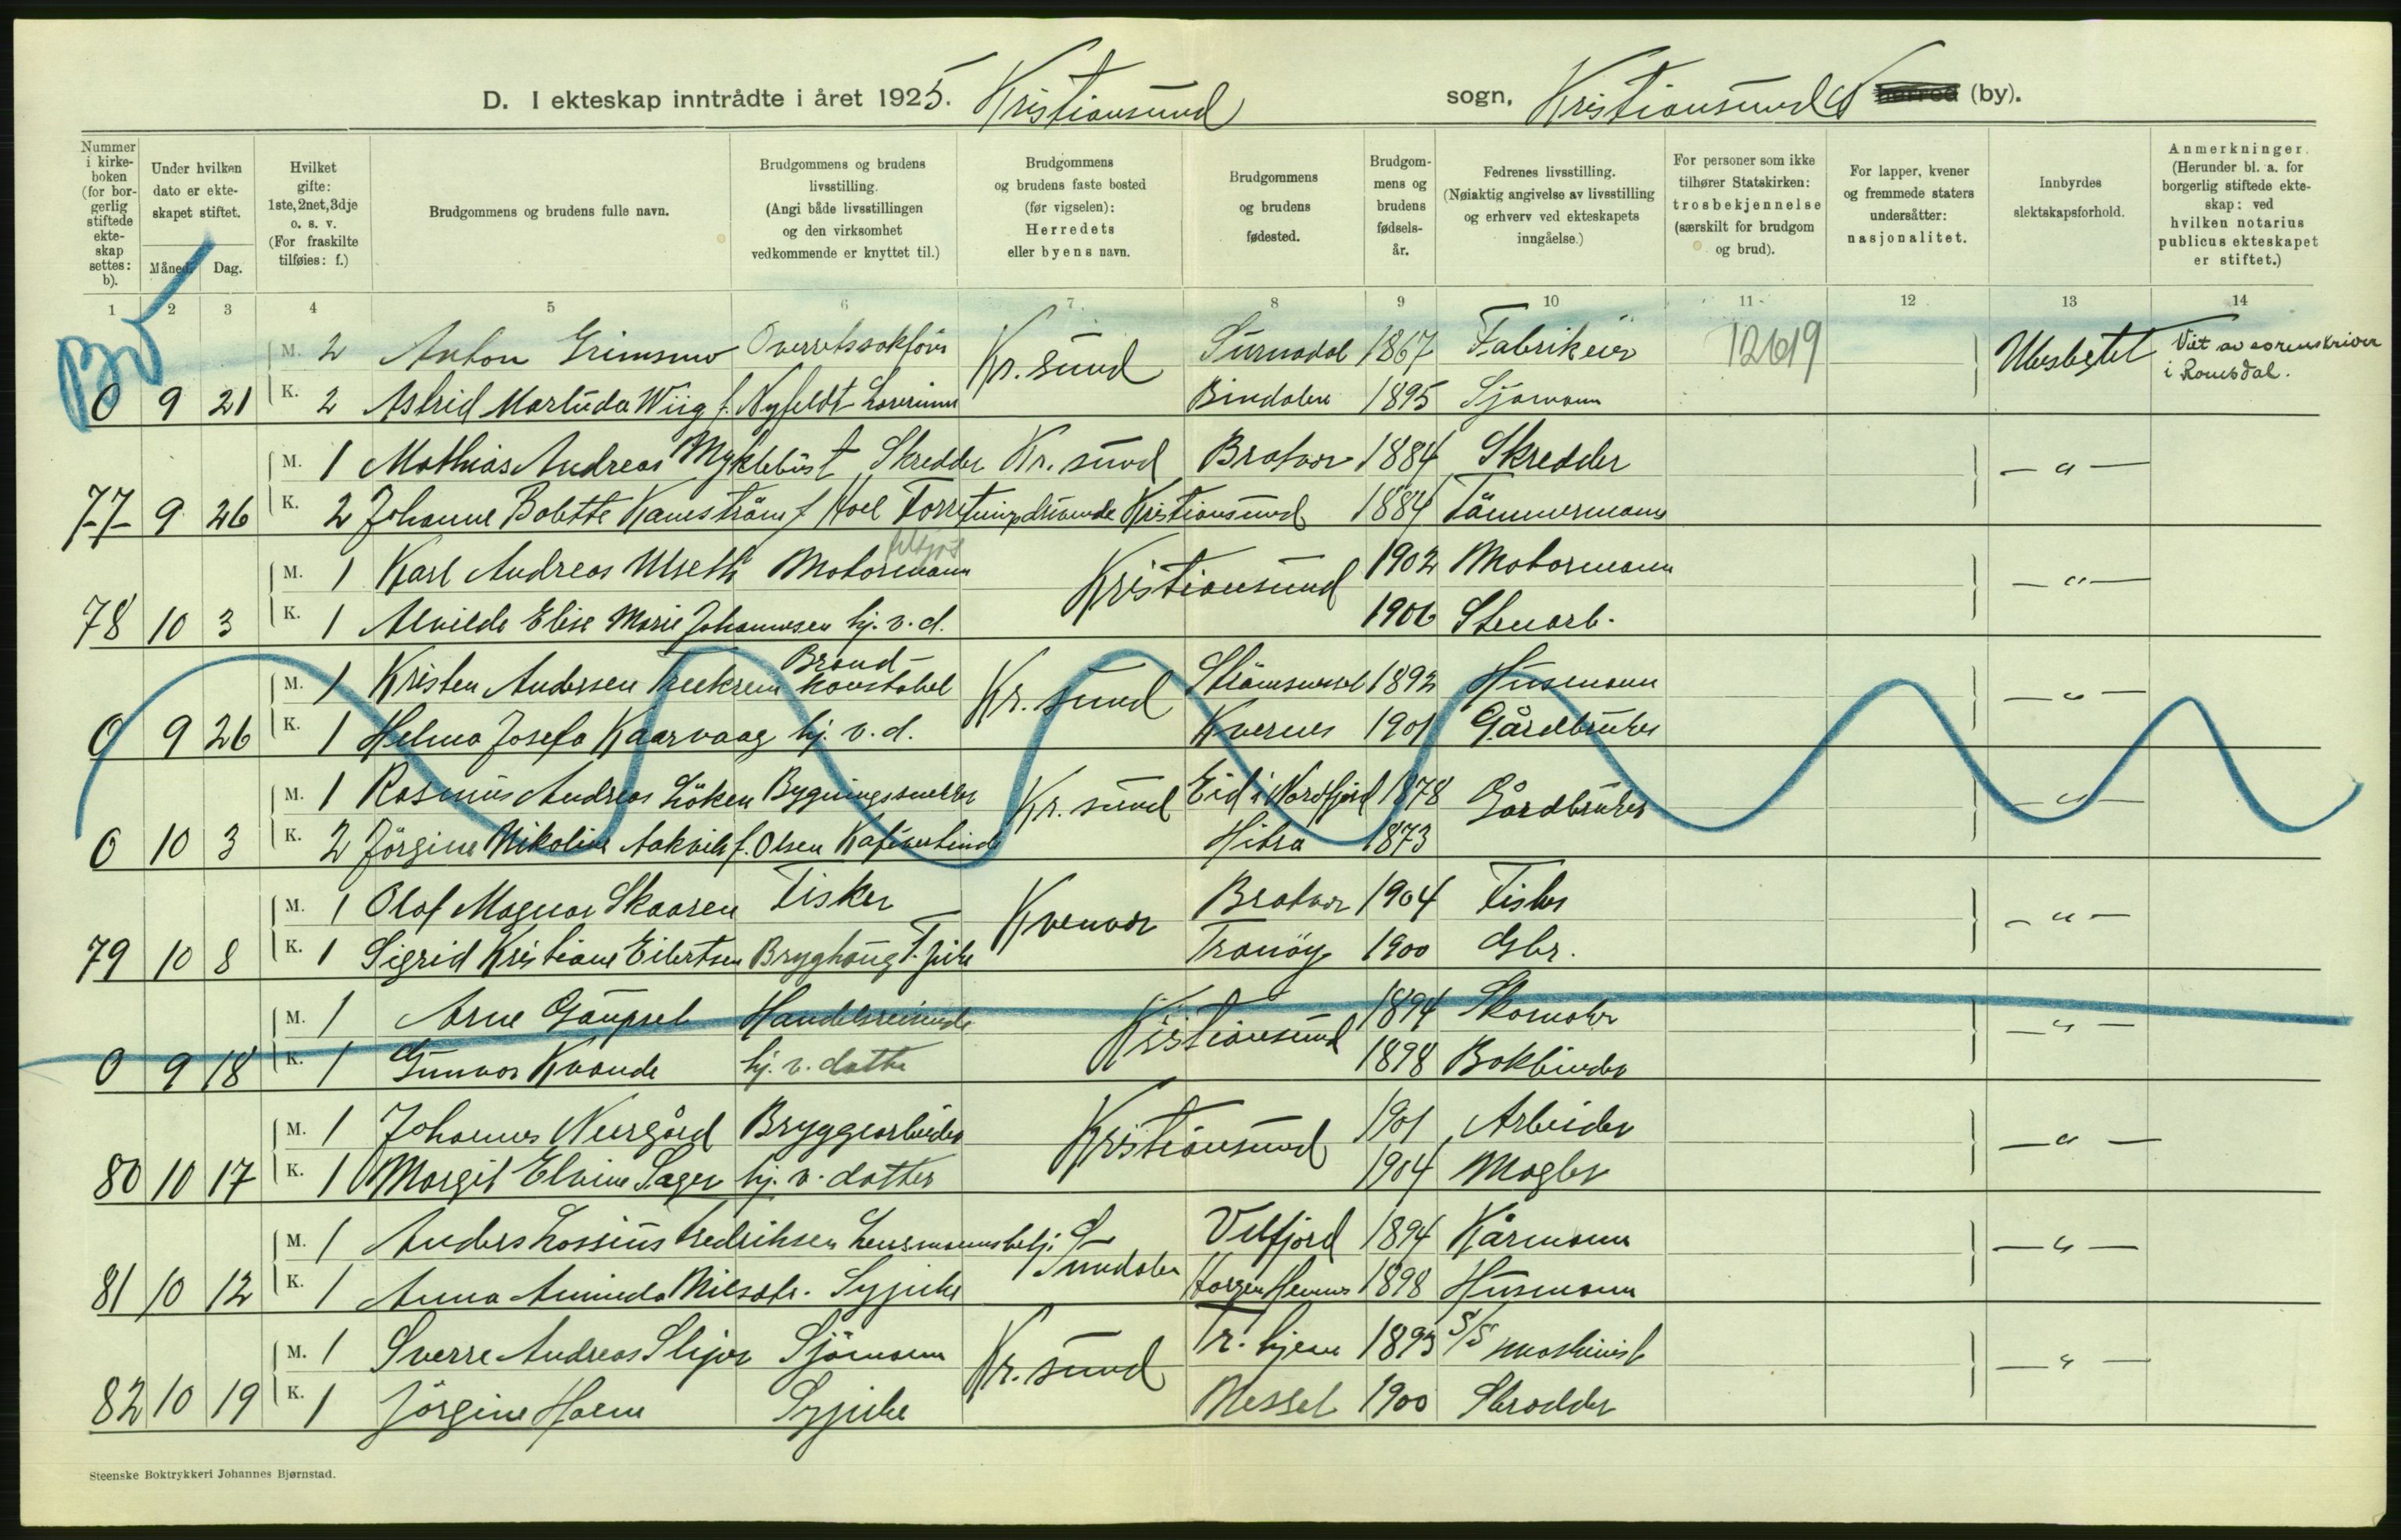 D. I ekteskap inntrådte i året 1925. Kristiansund sogn, Kristiansund N herred (by).
Nummer i kirkeboken (for borgerlig stiftede ekteskap settes: b).
Under hvilken dato er ekteskapet stiftet. Måned. Dag.
Hvilket gifte: 1ste, 2net, 3dje o. s. v. (For fraskilte tilføies: f.)
Brudgommens og brudens fulle navn.
Brudgommens og brudens livsstilling. (Angi både livsstillingen og den virksomhet vedkommende er knyttet til.)
Brudgommens og brudens faste bosted (før vigselen): Herredets eller byens navn.
Brudgommens og brudens fødested.
Brudgommens og brudens fødselsår.
Fedrenes livsstilling. (Nøiaktig angivelse av livsstilling og erhverv ved ekteskapets inngåelse.)
For personer som ikke tilhører Statskirken: trosbekjennelse (særskilt for brudgom og brud).
For lapper, kvener og fremmede staters undersåtter: nasjonalitet.
Innbyrdes slektskapsforhold.
Anmerkninger. (Herunder bl. a. for borgerlig stiftede ekteskap: ved hvilken notarius publicus ekteskapet er stiftet.)
1 2 3 4 5 6 7 8 9 10 11 12 13 14
M. 2 Anton Grimsmo Overretssakfører Kr. sund Surnadal 1867 Fabrikeier 12619 Ubeslegtet Viet av sorenskriver i Romsdal.
0 9 21 K. 2 Astrid Marluda Wiig f. Nyfeldt Lærerinne Bindalen 1895 Sjømann
M. 1 Mathias Andreas Myklebust Skredder Kr. sund Bratvær 1884 Skredder — " —
77 9 26 K. 2 Johanne Bolette Kanestrøm f. Hoel Forretningsdrivende Kristiansund 1884 Tømmermann
M. 1 Karl Andreas Ulseth Motormann Kristiansund 1902 Motormann — " —
78 10 3 K. 1 Alvilde Elise Marie Johannesen hj. v. d. 1906 Stenarb.
M. 1 Kristen Andersen Treekrem Brandkonstabel Kr. sund Straumsnes 1892 Husmann — " —
0 9 26 K. 1 Helma Josefa Kaarvaag hj. v. d. Kvernes 1901 Gårdbruker
M. 1 Rasmus Andreas Løken Bygningssnekker Kr. sund Eid i Nordfjord 1878 Gårdbruker — " —
0 10 3 K. 2 Jørgine Nikoline Aakvik f. Olsen Kaféværtinde Hitra 1873
M. 1 Olaf Magnar Skaaren Fisker Kvenvær Bratvær 1904 Fisker — " —
79 10 8 K. 1 Sigrid Kristiane Eilertsen Bryghaug T. pike Tranøy 1900 Gbr.
M. 1 Arne Gaupset Handelsreisende Kristiansund 1894 Skomaker — " —
0 9 18 K. 1 Gunvor Kvande hj. v. datter 1898 Bokbinder
M. 1 Johannes Neergård Bryggearbeider Kristiansund 1901 Arbeider — " —
80 10 17 K. 1 Margit Elvine Sager hj. v. datter 1904 Mægler
M. 1 Anders Lossius Fredriksen Lensmannsbetj. Sunndalen Velfjord 1894 Kårmann — " —
81 10 12 K. 1 Anna Aminda Nilsdtr. Sypike Hemnes 1898 Husmann
M. 1 Sverre Andreas Slijor Sjømann Kr. sund Tr. hjem 1893 S/S maskinist — " —
82 10 19 K. 1 Jørgine Holm Sypike Nesset 1900 Skredder
Steenske Boktrykkeri Johannes Bjørnstad.